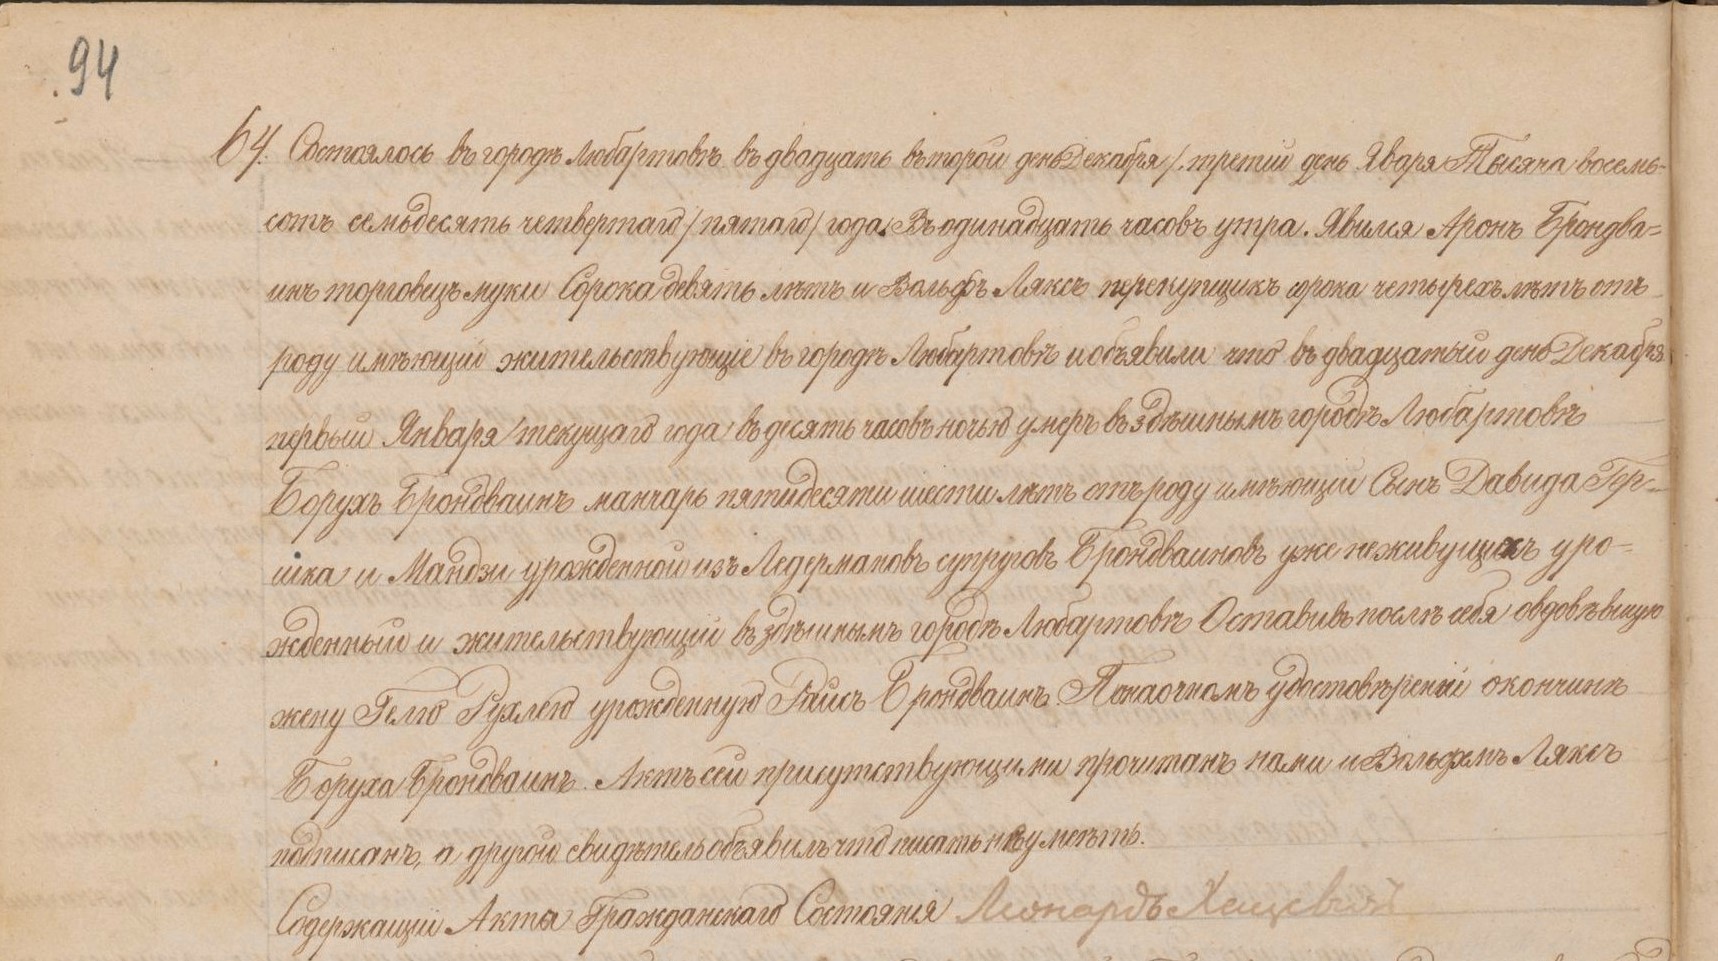 94
64. Состоялось въ городѣ Любартовѣ въ двадцать въторой день Декабря /. третий день Яваря Тысяча восемь-
сотъ семьдесять четвертаго /пятаго/ года. Въ одинадцать часовъ утра. Явился Аронъ Брондва=
инъ торговецъ муки Сорока девять лѣтъ и Вольфъ Ляксъ перекупщикъ сорока четырехъ лѣтъ отъ
роду имѣющий жительствующіе въ городѣ Любартовѣ и объявили что въ двадцатый день Декабря
первый Января /текущаго года въ десять часовъ ночью умеръ въ здѣшнымъ городѣ Любартовѣ
Борухъ Брондваинъ манчарь пятидесяти шести лѣтъ отъ роду имѣющій Сынъ Давида Гер-
шка и Мандзи урожденной изъ Ледермановъ супруговъ Брондваиновъ уже неживущихъ уро=
жденный и жительствующій въ здѣшнымъ городѣ Любартовѣ Оставивъ послѣ себя овдовѣвшую
жену Гелю Рухлею урожденную Райсъ Брондваинъ. По наочномъ удостовѣреніи окончинѣ
Боруха Брондваинъ. Актъ сей присутствующими прочитанъ нами и Вольфомъ Ляксъ
подписанъ, а другою свидѣтель объявилъ что писать не умѣетъ.
Содержащій Акта Гражданскаго Состоянія Леонардъ